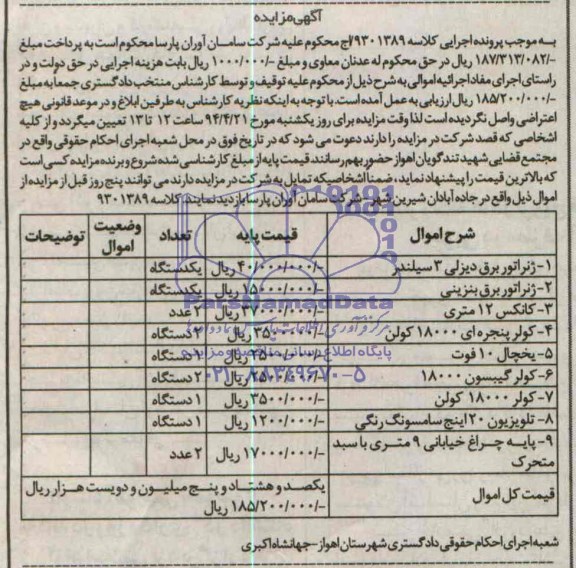 آگهی مزایده
به موجب پرونده اجرایی کلاسه ۹۳۰۱۳۸۹/اج محکوم علیه شرکت سامان آوران پارسا محکوم است به پرداخت مبلغ
۱۸۷/۳۱۳/۰۸۲/- ریال در حق محکوم له عدنان معاوی و مبلغ ۱۰۰۰/۰۰۰/- ریال بابت هزینه اجرایی در حق دولت و در
راستای اجرای مفاد اجرائیه اموالی به شرح ذیل از محکوم علیه توقیف و توسط کارشناس منتخب دادگستری جمعا به مبلغ
۱۸۵/۲۰۰/۰۰۰/- ریال ارزیابی به عمل آمده است. با توجه به اینکه نظریه کارشناس به طرفین ابلاغ و در موعد قانونی هیچ
اعتراضی واصل نگردیده است لذا وقت مزایده برای روز یکشنبه مورخ ۹۴/۴/۲۱ ساعت ۱۲ تا ۱۳ تعیین میگردد و از کلیه
اشخاصی که قصد شرکت در مزایده را دارند دعوت می شود که در تاریخ فوق در محل شعبه اجرای احکام حقوقی واقع در
مجتمع قضایی شهید تندگویان اهواز حضور بهم رسانند. قیمت پایه از مبلغ کارشناسی شده شروع و برنده مزایده کسی است
که بالاترین قیمت را پیشنهاد نماید، ضمنا اشخاصیکه تمایل به شرکت در مزایده دارند می توانند پنج روز قبل از مزایده از
اموال ذیل واقع در جاده آبادان شیرین شهر - شرکت سامان آوران پارسا بازدید نمایند. کلاسه ۹۳۰۱۳۸۹
شرح اموال قیمت پایه تعداد وضعیت اموال توضیحات
۱- ژنراتور برق دیزلی ۳ سیلندر ۴۰/۰۰۰/۰۰۰/- ریال یکدستگاه
۲- ژنراتور برق بنزینی ۱۵۰۰۰/۰۰۰/- ریال یکدستگاه
۳- کانکس ۱۲ متری ۳۷۰۰۰/۰۰۰/- ریال ۲ عدد
۴- کولر پنجره ای ۱۸۰۰۰ کولن ۳۵۰۰۰/۰۰۰/- ریال دستگاه
۵- یخچال ۱۰ فوت ریال دستگاه
۶- کولر گیبسون ۱۸۰۰۰ ریال ۲ دستگاه
۷- کولر ۱۸۰۰۰ کولن ۳۵۰۰/۰۰۰/- ریال ۱ دستگاه
۸- تلویزیون ۲۰ اینچ سامسونگ رنگی ۱۲۰۰/۰۰۰/- ریال ۱ دستگاه
۹- پایه چراغ خیابانی ۹ متری با سبد متحرک ۱۷۰۰۰/۰۰۰/- ریال ۲ عدد
قیمت کل اموال یکصد و هشتاد و پنج میلیون و دویست هزار ریال
۱۸۵/۲۰۰/۰۰۰/- ریال
شعبه اجرای احکام حقوقی دادگستری شهرستان اهواز - جهانشاه اکبری
ParsNamadData
پایگاه اطلاع رسانی مناقصه و مزایده
۰۲۱-۸۸۳۴۹۶۷۰-۵